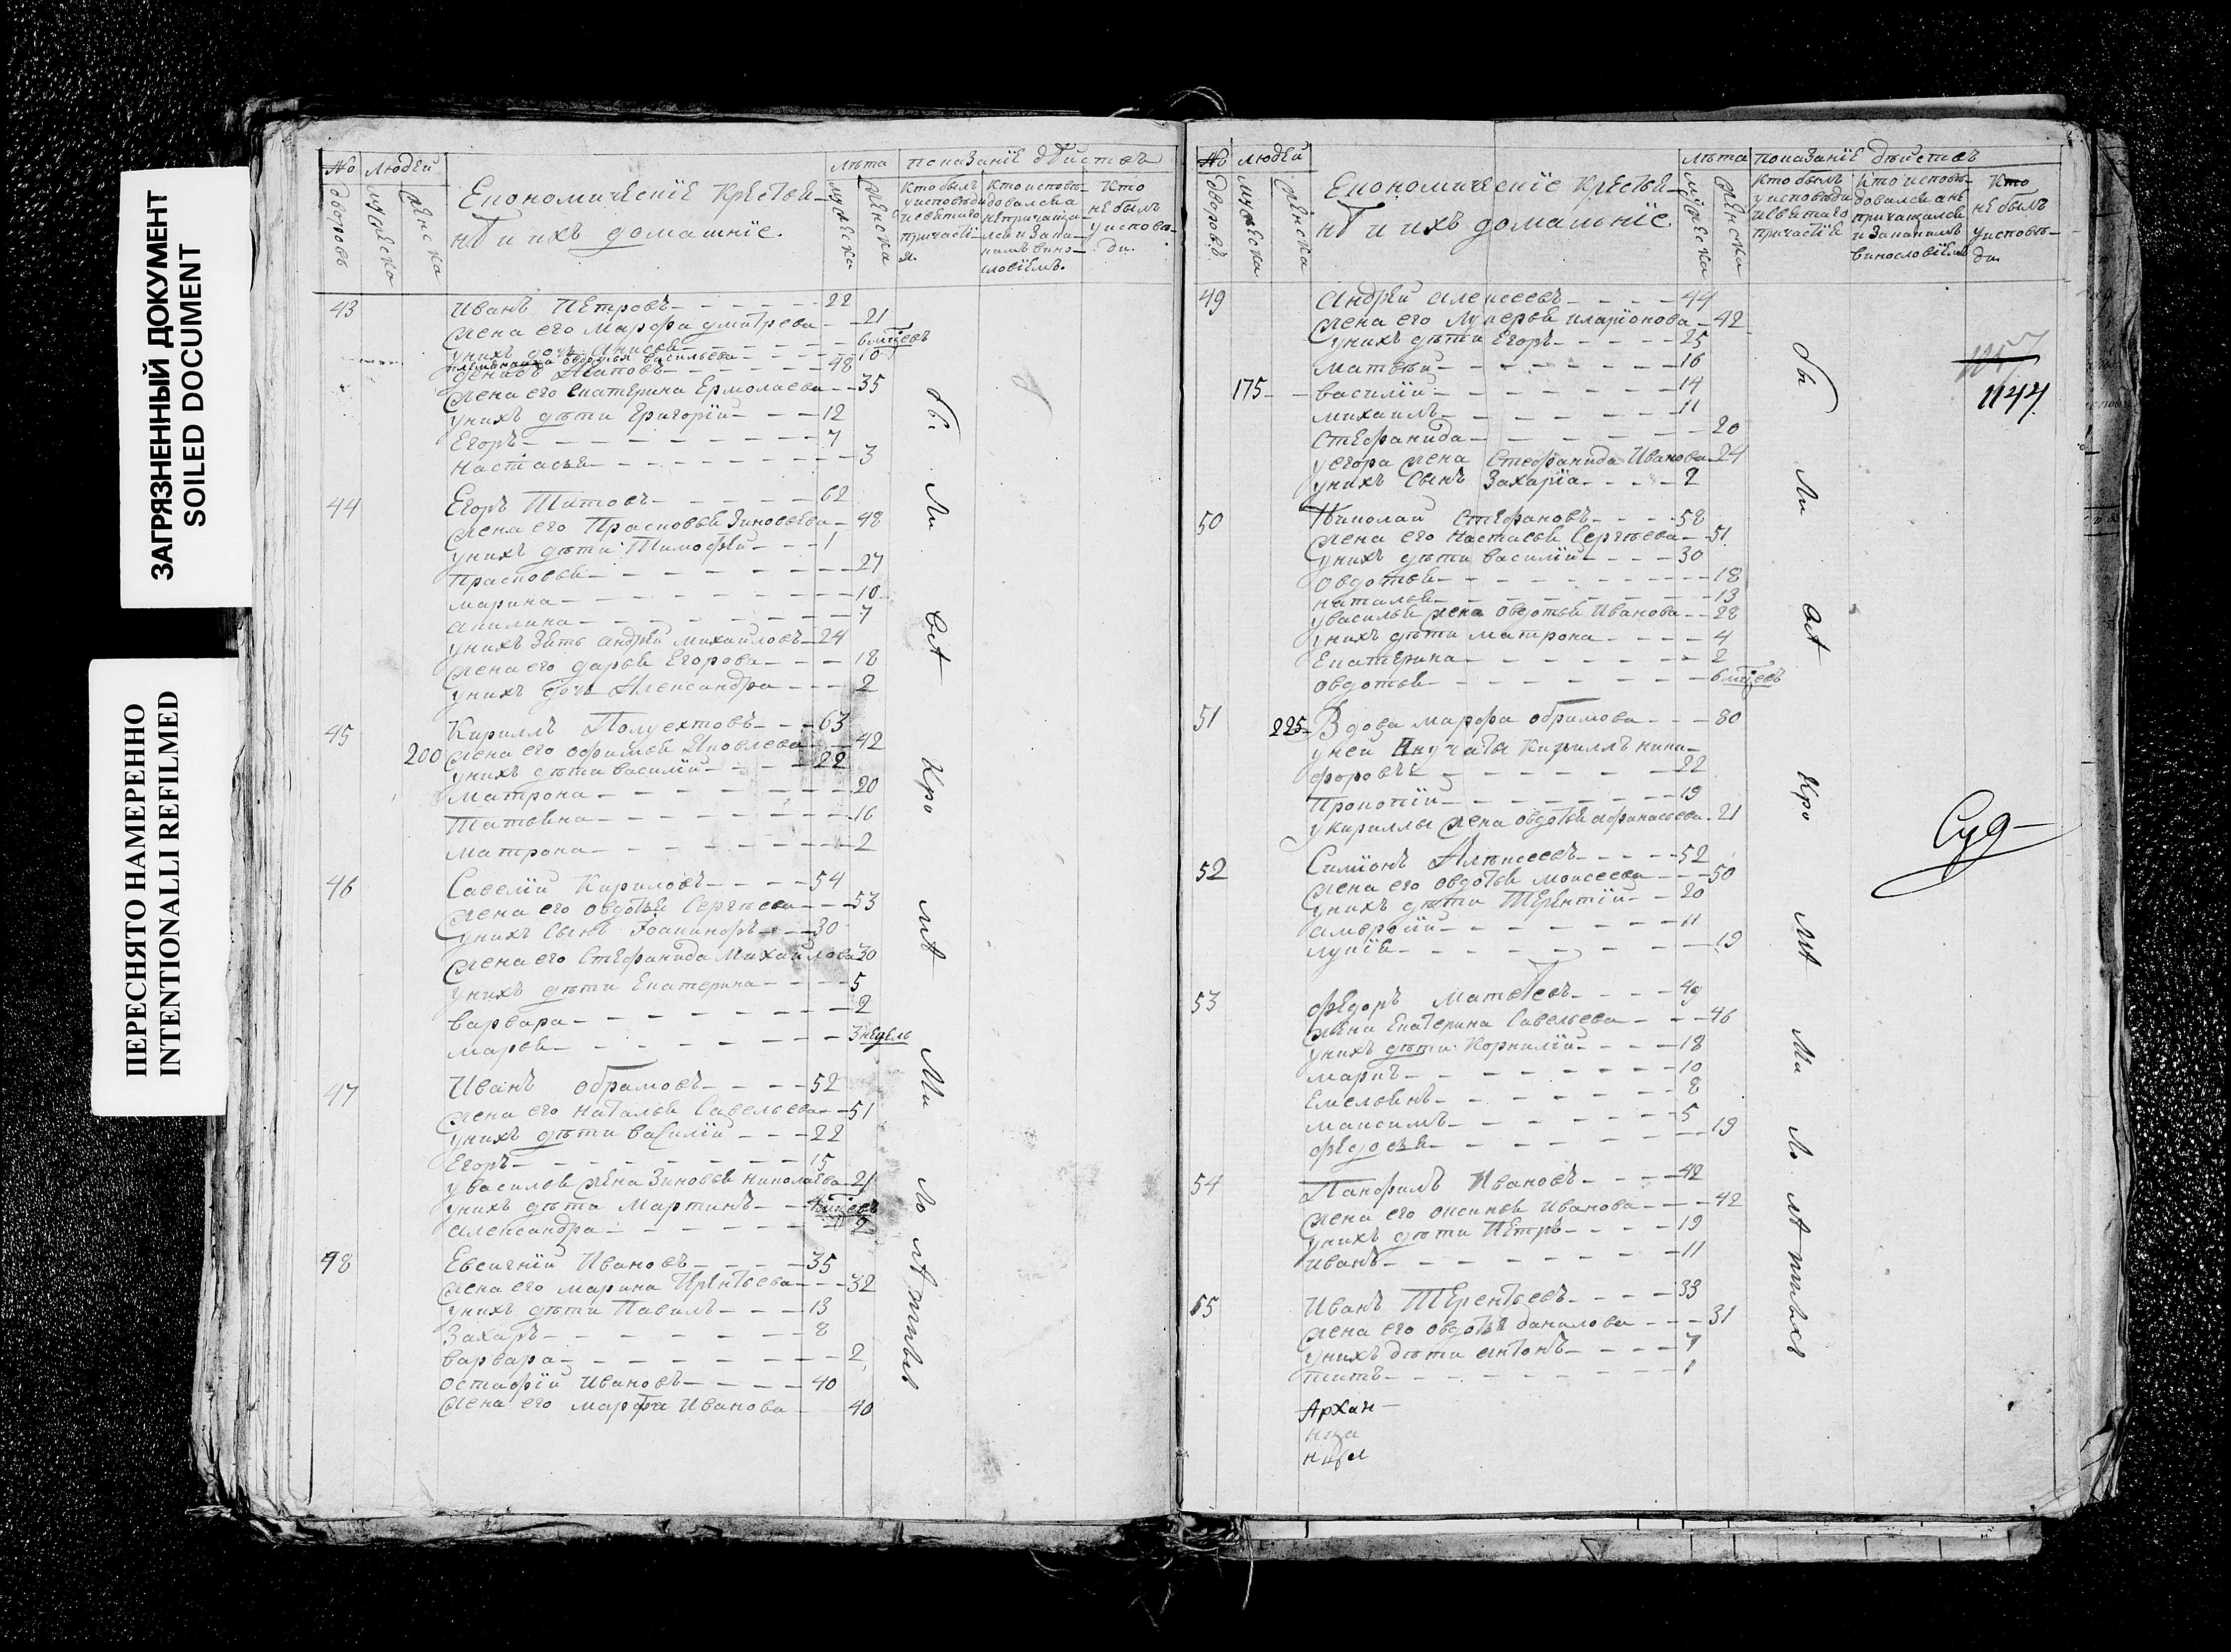 ЗАГРЯЗНЕННЫЙ ДОКУМЕНТ
SOILED DOCUMENT
ПЕРЕСНЯТО НАМЕРЕННО
INTENTIONALLI REFILMED
No людей лѣта показанїе дѣйствъ
дворовъ мужеска женска
Економическїе крестья-
нѣ и ихъ домашнїе.
мужеска женска
кто былъ у исповѣди и святаго причастї-я.
кто исповѣ-довался а не причащался и за каки-мъ вино-словїемъ.
Кто не былъ у исповѣ-ди.
43 Иванъ Петровъ 22
жена его Марфа Дмитрева 21
у нихъ дочь Анисья 6 мцевъ
племянница Овдотья Васильева 10
Денисъ 48
жена его Екатерина Ермолаева 35
у нихъ дѣти Григорїй 12
Егоръ 7
Настасья 3
44 Егоръ Титовъ 62
жена его Прасковья Зиновьева 48
у нихъ дѣти Тимофей 1
Прасковья 27
Марина 10
Акилина 7
у нихъ зять Андрей Михайловъ 24
жена его Дарья Егорова 18
у нихъ дочь Александра 2
45 Кириллъ Полуехтовъ 63
200 жена его Офимья Яковлева 42
у нихъ дѣти Василїй 22
Матрона 20
Татьяна 16
Матрона 2
46 Савелїй Кириловъ 54
жена его Овдотья Сергѣева 53
у нихъ сынъ Їоаникїфъ 30
жена его Стефанида Михайлова 30
у нихъ дѣти Екатерина 5
Варвара 2
Марья 3 недель
47 Иванъ Обрамовъ 52
жена его Наталья Савельева 51
у нихъ дѣти Василїй 22
Егоръ 15
у Василья жена Зиновья Николаева 21
у нихъ дѣти Мартинъ 4 мцевъ
Александра 2
48 Евсигнїй Ивановъ 35
жена его Марина Терентьева 32
у нихъ дѣти Павилъ 13
Захаръ 8
Варвара 2
Остафїй Ивановъ 40
жена его Марфа Иванова 40
бы ли вся кро мѣ ма ло лѣтныхъ
No людей лѣта показанїе дѣйствъ
дворовъ мужеска женска
Економическїе крестья-
нѣ и ихъ домашнїе
мужеска женска
Кто былъ у исповѣди и святаго причастїя
Кто исповѣ-довался а не причащался и за какимъ винословїемъ
Кто не былъ у исповѣ-ди
49 Андрей Алексеевъ 44
жена его Лукерья Иларїонова 42
у нихъ дѣти Егоръ 25
Матвѣй 16
175 Василїй 14
Михаилъ 11
Стефанида 20
у Егора жена Стефанида Иванова 24
у нихъ сынъ Захарїа 2
50 Николай Стефановъ 58
жена его Настасья Сергѣева 51
у нихъ дѣти Василїй 30
Овдотья 18
Наталья 13
у Василья жена Овдотья Иванова 28
у нихъ дѣти Матрона 4
Екатерина 2
Овдотья 6 мцевъ
51 225 Вдова Марфа Обрамова 80
у ней внучата Кириллъ Ники-
форовъ 22
Прокопїй 19
у Кириллы жена Овдотья Афанасьева 21
52 Симїонъ Алѣксеевъ 52
жена его Овдотья Моисеева 50
у нихъ дѣти Терентїй 20
Амвросїй 11
Лукїя 19
53 Федоръ Матвѣевъ 49
жена Екатерина Савельева 46
у нихъ дѣти Корнилїй 18
Маркъ 10
Емельянъ 8
Максимъ 5
Федосья 19
54 Панфилъ Ивановъ 42
жена его Оксинья Иванова 42
у нихъ дѣти Петръ 19
Иванъ 11
55 Иванъ Терентьевъ 33
жена его Овдотья Данилова 31
у нихъ дѣти Антонъ 7
Титъ 1
Архан-
бы ли вся кро мѣ ма ло лѣтныхъ
1144
Суд-